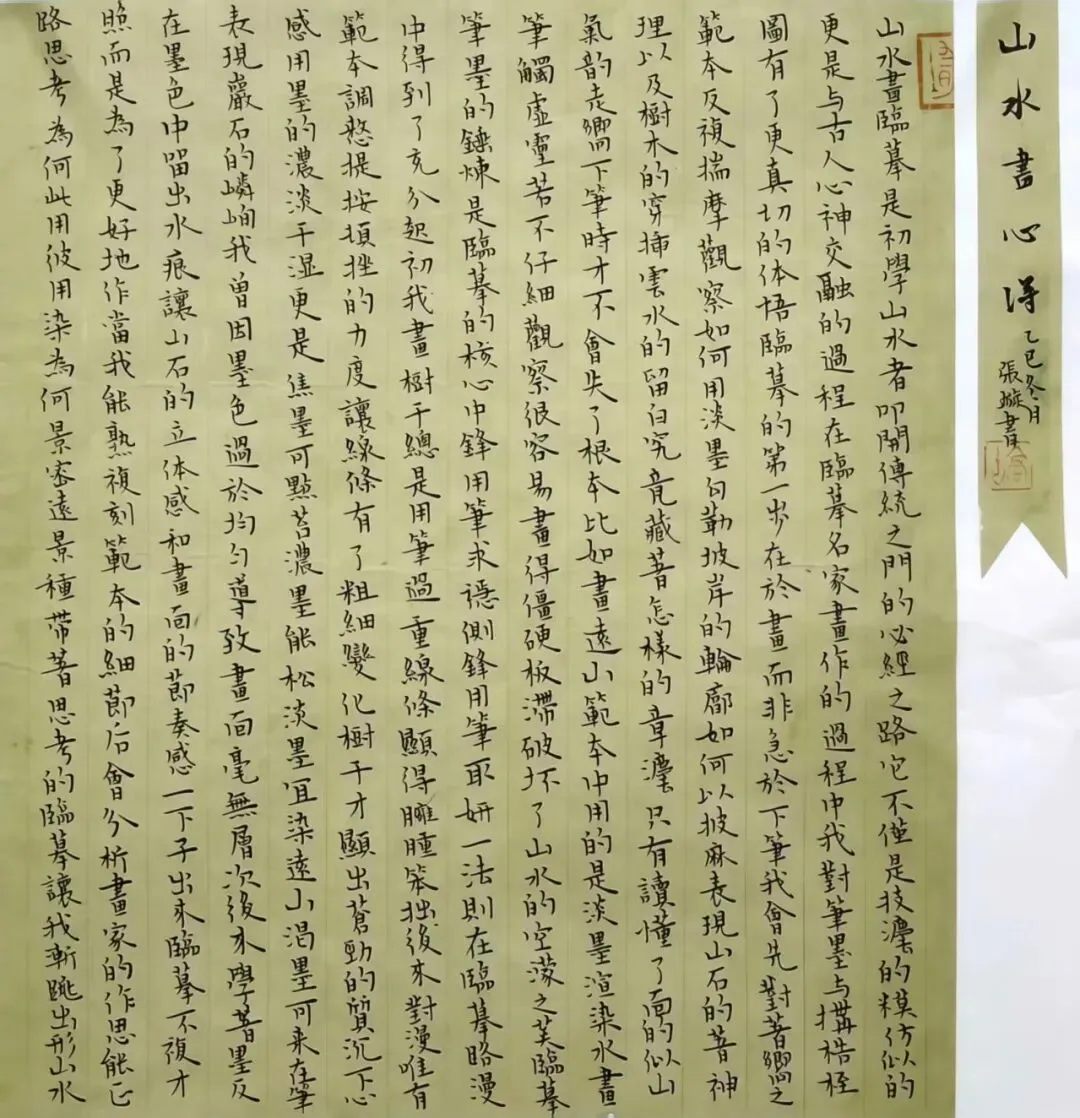 山水畫心得
乙巳冬月
張璇書
山水畫臨摹是初學山水者叩開傳統之門的必經之路它不僅是技灋的模仿似的
更是与古人心神交融的過程在臨摹名家畫作的過程中我對筆墨与搆桰桎
圖有了更真切的体悟臨摹的第一步在於畫而非急於下筆我會先對著嚮之
範本反複揣摩觀察如何用淡墨勾勒坡岸的輪廓如何以披麻表現山石的著神
理以及樹木的穿揷雲水的留白究竟藏著怎樣的章灋只有讀懂了面的似山
氣韵走嚮下筆時才不會失了根本比如畫遠山範本中用的是淡墨渲染水畫
筆觸虛靈若不仔細觀察很容易畫得僵硬板滯破坏了山水的空濛之美臨摹
筆墨的錘煉是臨摹的核心中鋒用筆求穩側鋒用筆取妍一法則在臨摹略漫
中得到了充分起初我畫樹干總是用筆過重線條顯得臃腫笨拙後來對漫唯有
範本調憗提按頓挫的力度讓線條有了粗細變化樹干才顯出蒼勁的質沉下心
感用墨的濃淡干湿更是焦墨可點苔濃墨能松淡墨宜染遠山渴墨可来在筆
表現巖石的嶙峋我曾因墨色過於均匀導致畫面毫無層次後来學著墨反
在墨色中留出水痕讓山石的立体感和畫面的節奏感一下子出来臨摹不複才
照而是為了更好地作當我能熟複刻範本的細節后會分析畫家的作思能正
路思考為何此用彼用染為何景密遠景種帶著思考的臨摹讓我漸跳出形山水